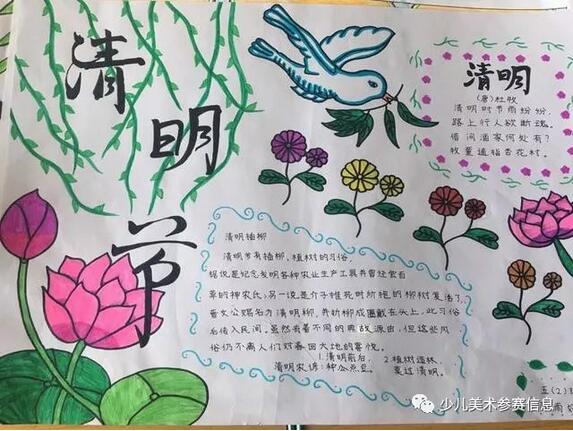 清明节
清明
(唐)杜牧
清明时节雨纷纷,
路上行人欲断魂。
借问酒家何处有?
牧童遥指杏花村。
清明插柳
清明节有插柳、植树的习俗。
据说是纪念发明各种农业生产工具并曾经尝百
草的神农氏,另一说是介子推死时所抱的柳树复活了,
晋文公赐名为清明柳,并折柳成圈戴在头上,此习俗
后传入民间。虽然有着不同的典故源由,但这些风
俗仍不离人们对春回大地的喜悦。
清明农谚:
1.清明前后,
种瓜点豆。
2.植树造林,
莫过清明。
五(2)
少儿美术参赛信息